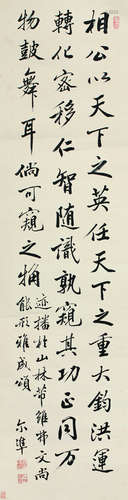 相公以天下之英任天下之重大鈞洪運
轉化密移仁智随識孰窺其功正同万
物鼓舞耳倘可窺之
迹播於山林芾雖弗文尚
能形雅成頌
尔準